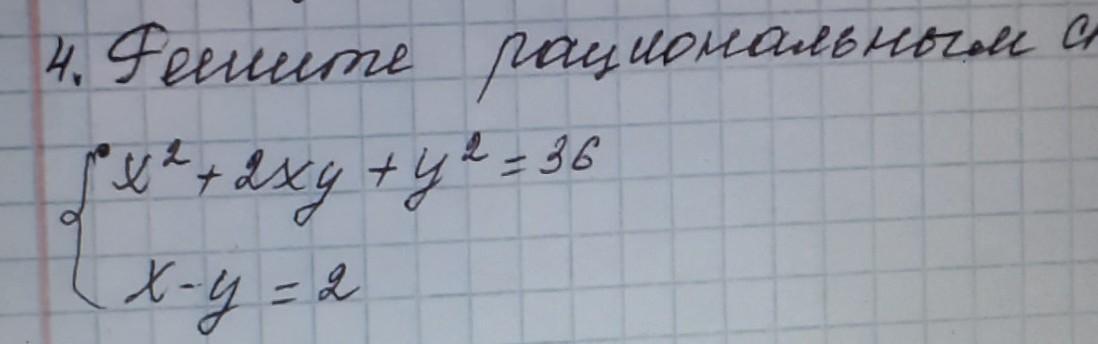 4. Решите рациональным
x² + 2xy + y² = 36
x - y = 2